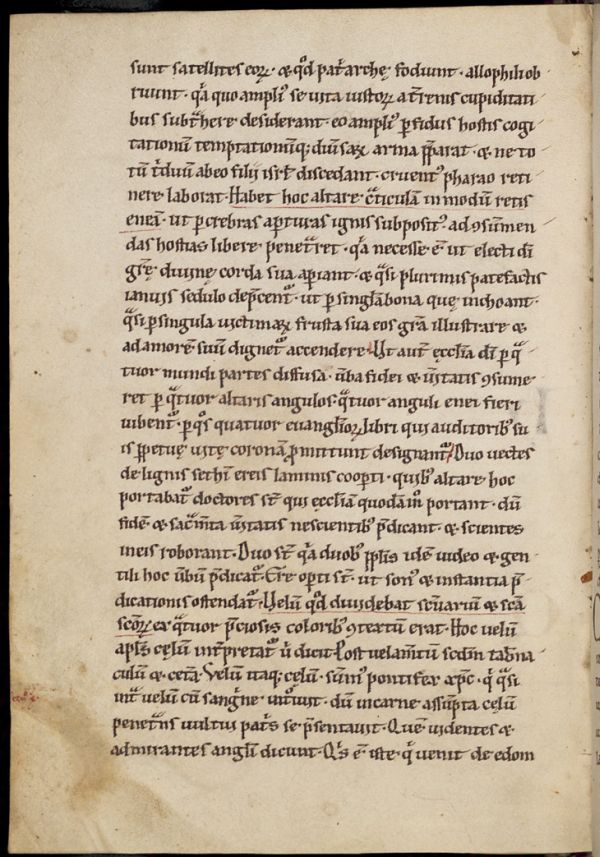 sunt satellites eorꝝ · & qd̄ patͥarchę fodiunt · allophili ob
ruunt · qͣa quo ampliꝰ se uita iustorꝝ a tr̄enis cupiditati
bus subtͣhere desiderant · eo ampliꝰ ꝑfidus hostis cogi
tationū temptationumq; diuͥsaꝝ arma p̄parat · & ne to
tū tͥduū abeo filii isrł discedant · cruentꝰ pharao reti
nere laborat · Habet hoc altare cͣticulā in modū retis
eneā · ut ꝑ crebras aꝑturas ignis subpositꝰ · ad ꝯsumen
das hostias libere penetͣret · qͣa necesse ē ut electi dī
gr̄ę diuinę corda sua aꝑiant · & qͣsi plurimis patefactis
ianuis sedulo dep̄cent᷒ · ut ꝑ singła bona quę inchoant ·
qͣsi ꝑ singula uictimaꝝ frusta sua eos gr̄a illustrare &
ad amorē suū dignet᷒ accendere · Ut aut̄ ęcclīa dī ꝑ qͣ
tuor mundi partes diffusa · uͥba fidei & uͥitatis ꝯsume
ret ꝑ qͣtuor altaris angulos · qͣtuor anguli enei fieri
iubent᷒ · ꝑ qͦs quatuor euangłioꝝ libri qui auditoribꝰ su
is ꝑpetuę uitę coronā ꝓmittunt designant᷒ · Duo uectes
de lignis sethī ereis laminis cooꝑti · quibꝰ altare hoc
portabat᷒ doctores st̄ qui ęcclīam quodāmͦ portant · dū
fidē & sac̄m̄ta uͥitatis nescientibꝰ p̄dicant · & scientes
in eis roborant · Duo st̄ qͣa duobꝰ ppłis idē iudeo & gen
tili hoc uͥbū p̄dicat᷒ · Ere oꝑti st̄ · ut sonꝰ & instantia p̄
dicationis ostendat᷒ · Uelū qd̄ diuidebat sc̄uariū & sc̄a
sc̄oꝝ ex qͣtuor p̄ciosis coloribꝰ ꝯtextū erat · Hoc uelū
apłs cęlum int̄pretat᷒ ū dicit · Post uelam̄tū sc̄dm tab̄na
culū & cet̄a · Uelū itaq; cęlū · sūmꝰ pontifex xp̄c · qͥ qͣsi
intͣ uelū cū sangͥne introiuit · dū in carne assūpta cęlū
penetͣns uultui patͥs se p̄sentauit · Quē uidentes &
admirantes angłi dicunt · Qͥs ē iste · qͥ uenit de edom